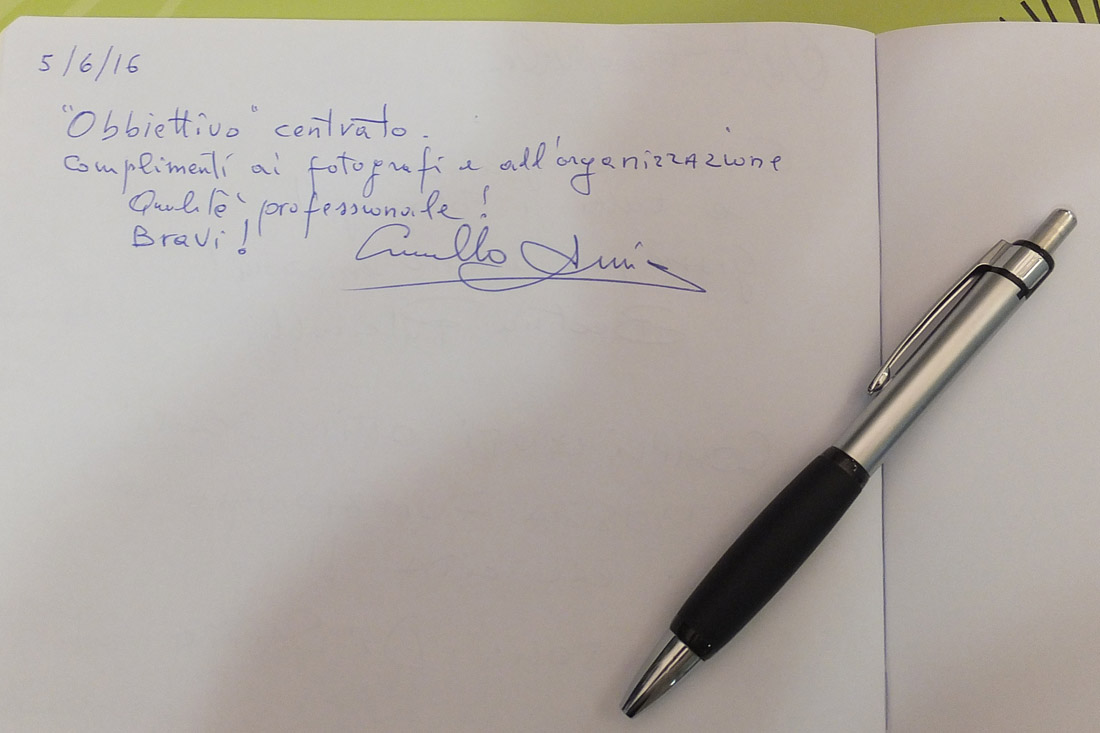 5/6/16
"Obbiettivo" centrato.
Complimenti ai fotografi e all'organizzazione
Qualità professionale!
Bravi!